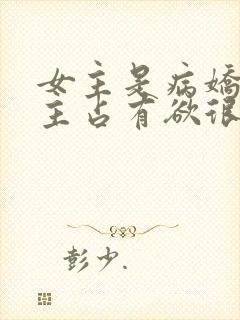 女主是病嬌
主占有欲很
彭少.